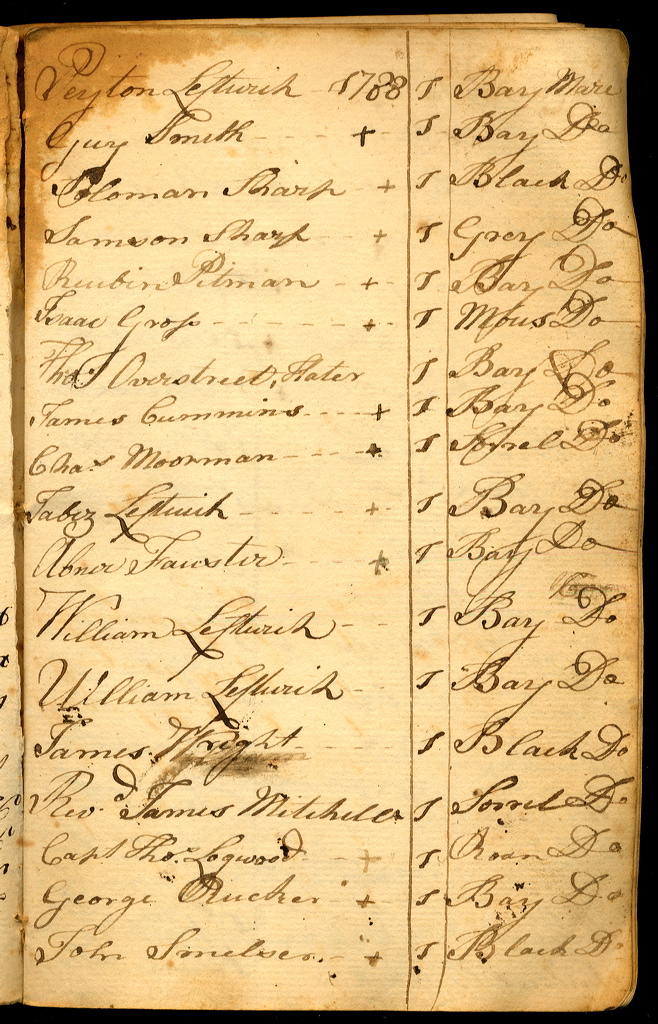 Peyton Leftwich 1788 1 Bay Mare
Guy Smith + 1 Bay Do
Soloman Sharp + 1 Black Do
Samson Sharp + 1 Grey Do
Reubin Pitman + 1 Bay Do
Isaac Gross + 1 Mous Do
Thos Overstreet, Slater 1 Bay Do
James Cummins + 1 Bay Do
Chas Moorman + 1 Sorrel Do
Jabez Leftwich + 1 Bay Do
Abner Fauster + 1 Bay Do
William Leftwich 1 Bay Do
William Leftwich 1 Bay Do
James Wright 1 Black Do
Revd James Mitchell 1 Sorrel Do
Capt Thos Logwood + 1 Roan Do
George Rucker + 1 Bay Do
John Smelser + 1 Black Do